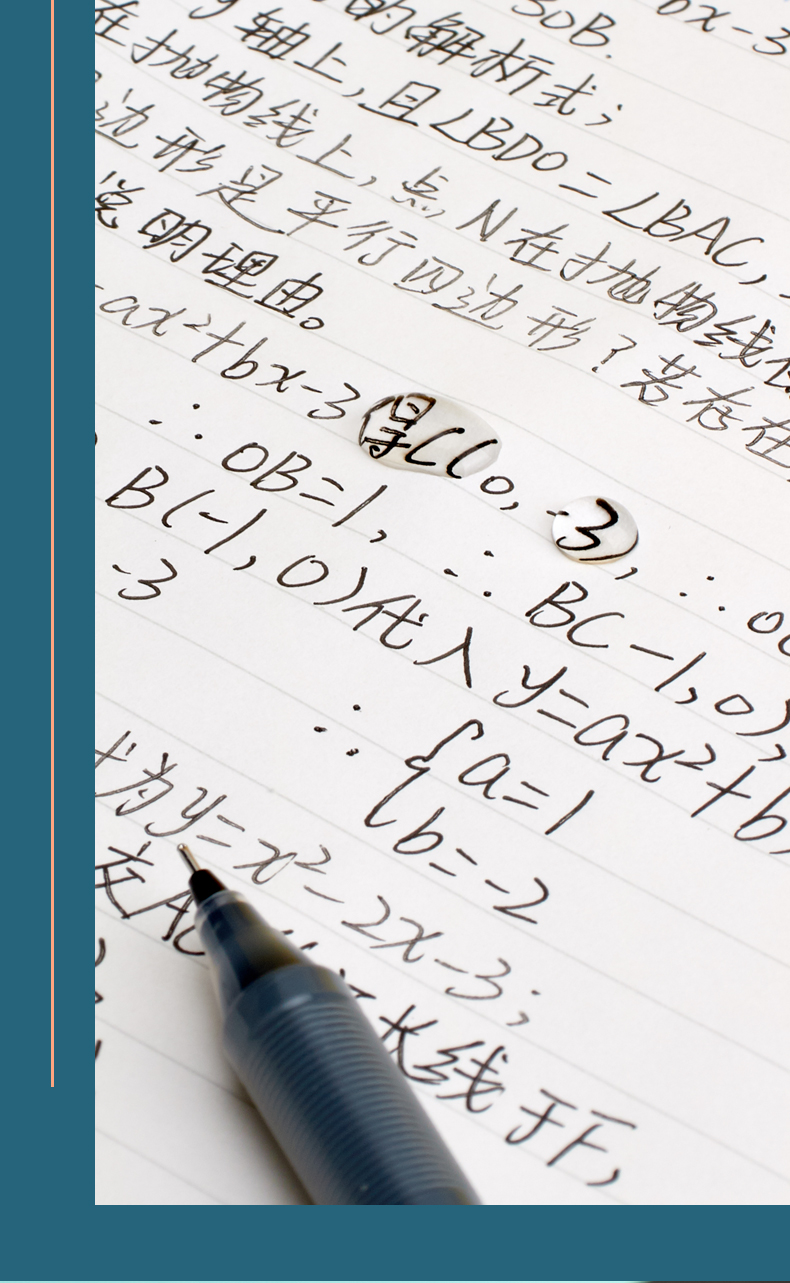 3OB. bx-3
的解析式；
y轴上，且∠BDO=∠BAC，
在抛物线上，点N在抛物线
边形是平行四边形？若存在
说明理由。
=ax²+bx-3得C(0,-3),∴
∴OB=1,∴BC-1,0),
B(-1,0)代入y=ax²+b
-3
∴{a=1
b=-2
为y=x²-2x-3；
交AC 长线于F,